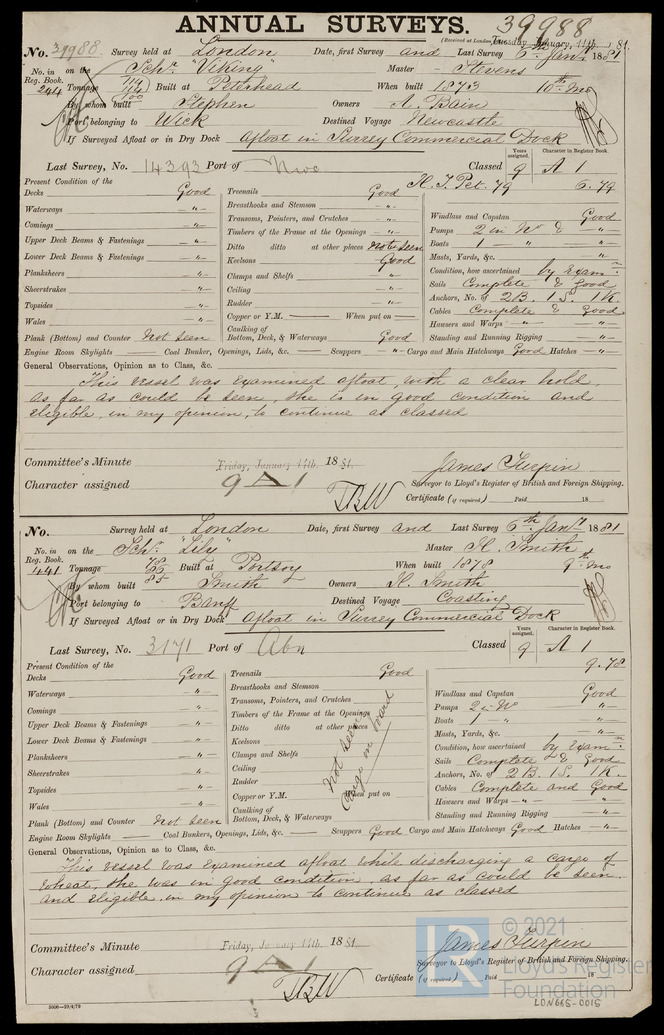 ANNUAL SURVEYS. 39988
(Received at London, Tuesday January, 11th. 1881.
No. 39988 Survey held at London Date, first Survey and Last Survey 6th Jany 1881
No. in Reg. Book. 244 on the Schr "Viking" Master Stevens
Tonnage Built at Peterhead When built 1873 10th mo
By whom built Stephen Owners A. Bain
Port belonging to Wick Destined Voyage Newcastle
If Surveyed Afloat or in Dry Dock Afloat in Surrey Commercial Dock
Years assigned. Character in Register Book.
Last Survey, No. 14393 Port of Nwc Classed 9 A 1
Present Condition of the
Decks Good Treenails Good 6.79
Waterways " Breasthooks and Stemson " Windlass and Capstan Good
Comings " Transoms, Pointers, and Crutches " Pumps "
Upper Deck Beams & Fastenings " Timbers of the Frame at the Openings " Boats 1 "
Lower Deck Beams & Fastenings " Ditto ditto at other places Not seen Masts, Yards, &c. "
Planksheers " Keelsons Good Condition, how ascertained by Examn:
Sheerstrakes " Clamps and Shelfs " Sails Complete & Good
Topsides " Ceiling " Anchors, No. of 2 B. 1 S. 1 K.
Wales " Rudder " Cables Complete & Good
Copper or Y.M. When put on Hawsers and Warps "
Plank (Bottom) and Counter Not seen Caulking of Bottom, Deck, & Waterways Good Standing and Running Rigging "
Engine Room Skylights Coal Bunker, Openings, Lids, &c. Scuppers " Cargo and Main Hatchways Good Hatches "
General Observations, Opinion as to Class, &c.
This vessel was examined afloat, with a clear hold,
as far as could be seen, she is in good condition and
eligible, in my opinion, to continue as classed
Committee's Minute Friday, January 14th. 1881. James Turpin
Character assigned 9 A 1 Surveyor to Lloyd's Register of British and Foreign Shipping.
Certificate (if required) Paid 18
No. Survey held at London Date, first Survey and Last Survey 6th Jany 1881
No. in Reg. Book. 441 on the Schr "Lily" Master H. Smith
Tonnage Built at Portsoy When built 1878 9th mo
By whom built Smith Owners H. Smith
Port belonging to Banff Destined Voyage Coasting
If Surveyed Afloat or in Dry Dock Afloat in Surrey Commercial Dock
Years assigned. Character in Register Book.
Last Survey, No. 3171 Port of Abn Classed 9 A 1
9.78
Present Condition of the
Decks Good Treenails Good
Waterways " Breasthooks and Stemson Windlass and Capstan Good
Comings " Transoms, Pointers, and Crutches Pumps "
Upper Deck Beams & Fastenings " Timbers of the Frame at the Openings Boats 1 "
Lower Deck Beams & Fastenings " Ditto ditto at other places Masts, Yards, &c. "
Planksheers " Keelsons Condition, how ascertained by Examn:
Sheerstrakes " Clamps and Shelfs Sails Complete & Good
Topsides " Ceiling Anchors, No. of 2 B. 1 S. 1 K.
Wales " Rudder Cables Complete and Good
Not seen Cargo on board
Copper or Y.M. When put on Hawsers and Warps "
Plank (Bottom) and Counter Not seen Caulking of Bottom, Deck, & Waterways Standing and Running Rigging "
Engine Room Skylights Coal Bunkers, Openings, Lids, &c. Scuppers Good Cargo and Main Hatchways Good Hatches "
General Observations, Opinion as to Class, &c.
This vessel was examined afloat while discharging a cargo of
wheat, she was in good condition, as far as could be seen
and eligible, in my opinion to continue as classed
Committee's Minute Friday, January 14th. 1881. James Turpin
Character assigned 9 A 1 Surveyor to Lloyd's Register of British and Foreign Shipping.
Certificate (if required) Paid 18
LR © 2021 Lloyd's Register Foundation
LDN665-0015